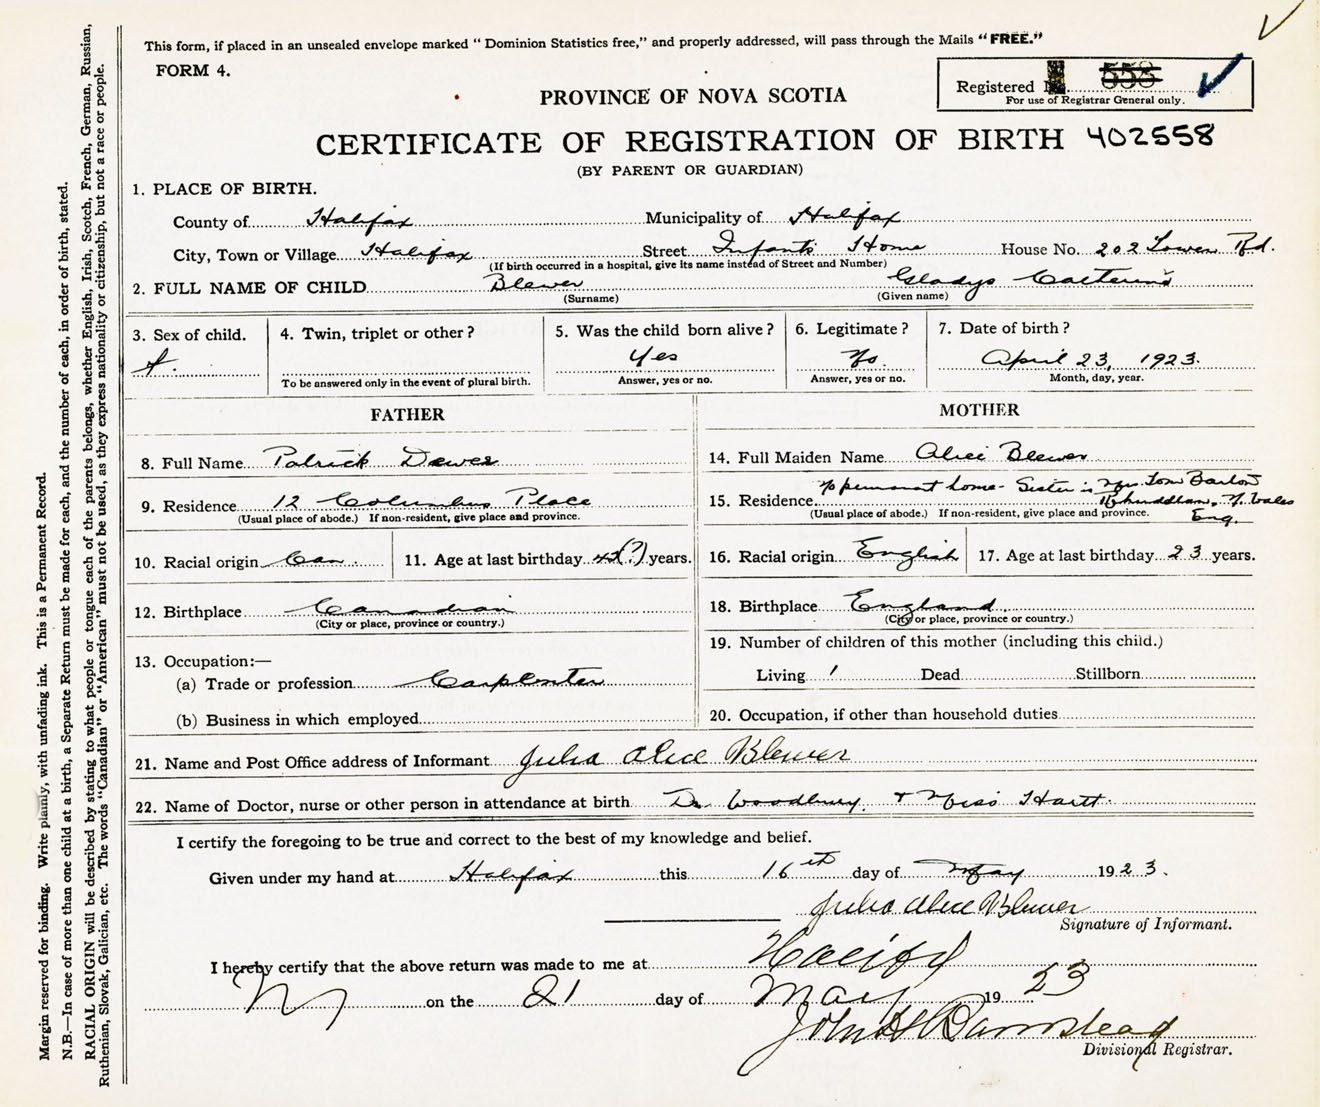 This form, if placed in an unsealed envelope marked “ Dominion Statistics free,” and properly addressed, will pass through the Mails “FREE.”
FORM 4.
Registered 558
For use of Registrar General only.
PROVINCE OF NOVA SCOTIA
CERTIFICATE OF REGISTRATION OF BIRTH 402558
(BY PARENT OR GUARDIAN)
1. PLACE OF BIRTH.
County of Halifax Municipality of Halifax
City, Town or Village Halifax Street Infants Home House No. 202 Tower Rd.
(If birth occurred in a hospital, give its name instead of Street and Number)
2. FULL NAME OF CHILD Blewer Gladys
(Surname) (Given name)
3. Sex of child. 4. Twin, triplet or other ? 5. Was the child born alive ? 6. Legitimate ? 7. Date of birth ?
f. Yes No. April 23, 1923.
To be answered only in the event of plural birth. Answer, yes or no. Answer, yes or no. Month, day, year.
FATHER MOTHER
8. Full Name Patrick Dewer
14. Full Maiden Name Alice Blewer
9. Residence 12 Columbus Place
(Usual place of abode.) If non-resident, give place and province.
No permanent home - Sister is Mrs. Tom Barton
15. Residence N. Wales
(Usual place of abode.) If non-resident, give place and province. Eng.
10. Racial origin Can. 11. Age at last birthday 42(?) years.
16. Racial origin English 17. Age at last birthday 23 years.
12. Birthplace Canadian
(City or place, province or country.)
18. Birthplace England.
(City or place, province or country.)
13. Occupation:—
(a) Trade or profession Carpenter
(b) Business in which employed
19. Number of children of this mother (including this child.)
Living 1 Dead Stillborn
20. Occupation, if other than household duties
21. Name and Post Office address of Informant Julia Alice Blewer
22. Name of Doctor, nurse or other person in attendance at birth Dr Woodbury. + Miss Hartt.
I certify the foregoing to be true and correct to the best of my knowledge and belief.
Given under my hand at Halifax this 16th day of May 1923.
Julia Alice Blewer
Signature of Informant.
I hereby certify that the above return was made to me at Halifax
on the 21 day of May 1923
John H Barnstead
Divisional Registrar.
Margin reserved for binding. Write plainly, with unfading ink. This is a Permanent Record.
N.B.—In case of more than one child at a birth, a Separate Return must be made for each, and the number of each, in order of birth, stated.
RACIAL ORIGIN will be described by stating to what people or tongue each of the parents belongs, whether English, Irish, Scotch, French, German, Russian,
Ruthenian, Slovak, Galician, etc. The words “Canadian” or “American” must not be used, as they express nationality or citizenship, but not a race or people.